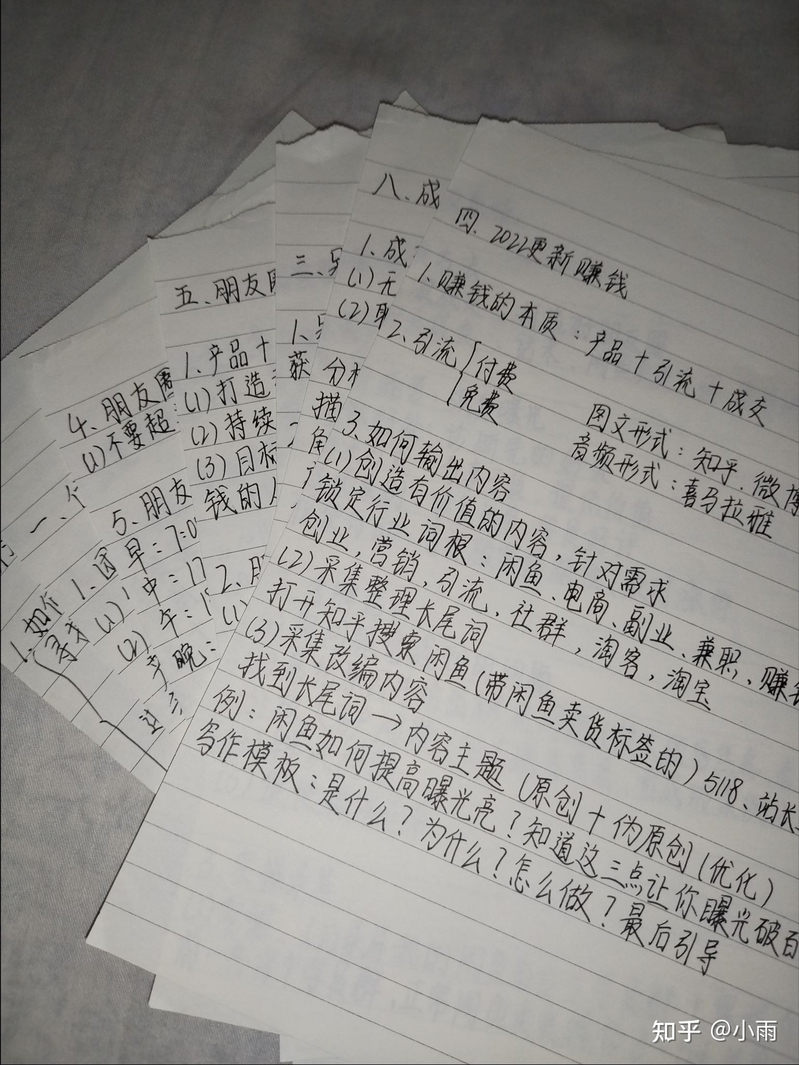 四、2022更新赚钱
1.赚钱的本质：产品＋引流＋成交
2.引流 付费
免费
图文形式：知乎.微博
音频形式：喜马拉雅
3.如何输出内容
(1)创造有价值的内容，针对需求
锁定行业词根：闲鱼、电商、副业、兼职、赚钱
创业，营销，引流、社群，淘客，淘宝
(2)采集整理长尾词
打开知乎搜索闲鱼(带闲鱼卖货标签的)5118、站长
(3)采集改编内容
找到长尾词→内容主题(原创＋伪原创(优化)
例：闲鱼如何提高曝光亮？知道这三点让你曝光破百
写作模板：是什么？为什么？怎么做？最后引导
八、成
1.成
(1)无
(2)
分
描
角
三、
1.
获
五、朋友
1.产品＋
(1)打造
(2)持续
(3)目标
钱的人
2.
(1)
4、朋友圈
(1)不要超
5.朋友
早：7:0
中：1
午：1
晚：
一、个
1.
(1)
(2)
1.如何
知乎 @小雨